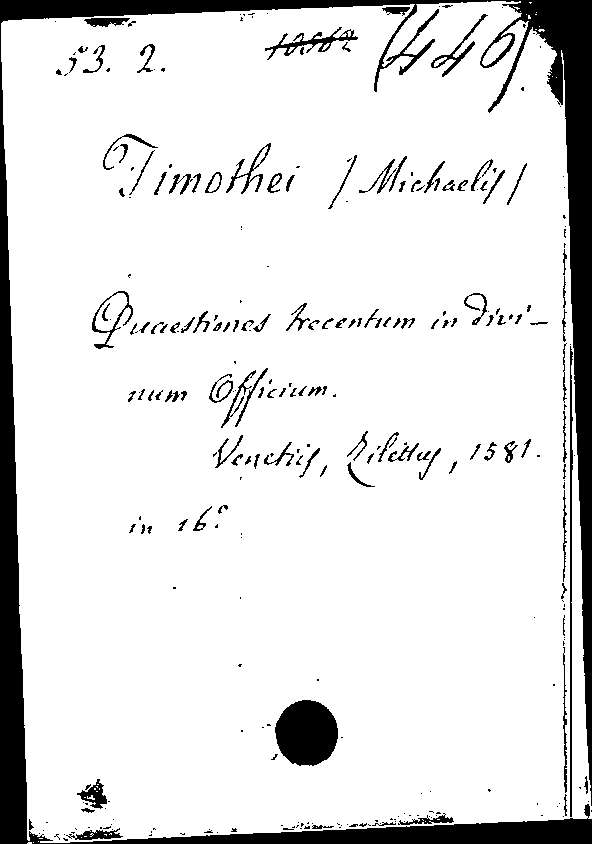 53. 2. 10562 (446).
Timothei / Michaelis /
Quaestiones trecentum in divi-
num Officium.
Venetiis, Zilettus, 1581.
in 16.°